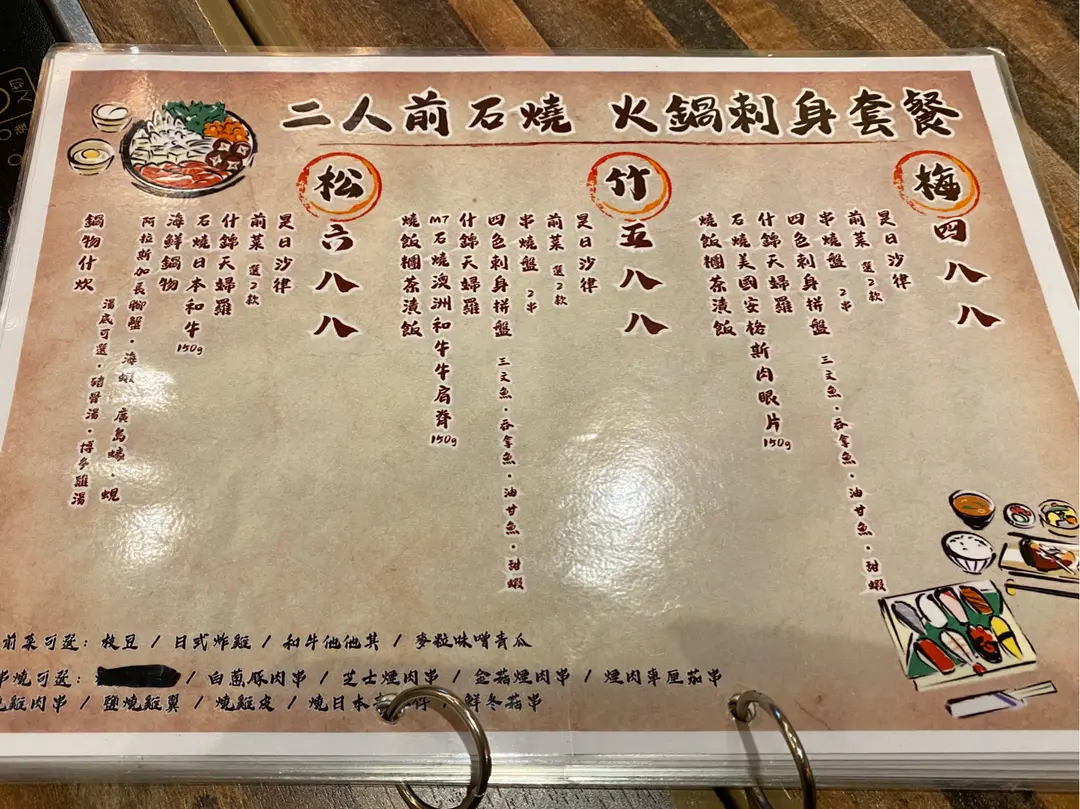 二人前石燒 火鍋刺身套餐
梅 四八八
是日沙律
前菜 選2款
串燒盤 2串
四色刺身拼盤 三文魚・吞拿魚・油甘魚・甜蝦
什錦天婦羅
石燒美國安格斯肉眼片 150g
燒飯糰茶漬飯
竹 五八八
是日沙律
前菜 選2款
串燒盤 2串
四色刺身拼盤 三文魚・吞拿魚・油甘魚・甜蝦
什錦天婦羅
M7石燒澳洲和牛牛肩脊 150g
燒飯糰茶漬飯
松 六八八
是日沙律
前菜 選2款
什錦天婦羅
石燒日本和牛 150g
海鮮鍋物
阿拉斯加長腳蟹・海蝦・廣島蠔・蜆
湯底可選・豬骨湯・博多雞湯
鍋物什炊
前菜可選: 枝豆 / 日式炸雞 / 和牛他他其 / 麥粒味噌青瓜
串燒可選: / 白蔥豚肉串 / 芝士煙肉串 / 金菇煙肉串 / 煙肉車厘茄串
雞肉串 / 鹽燒雞翼 / 燒雞皮 / 燒日本 / 鮮冬菇串